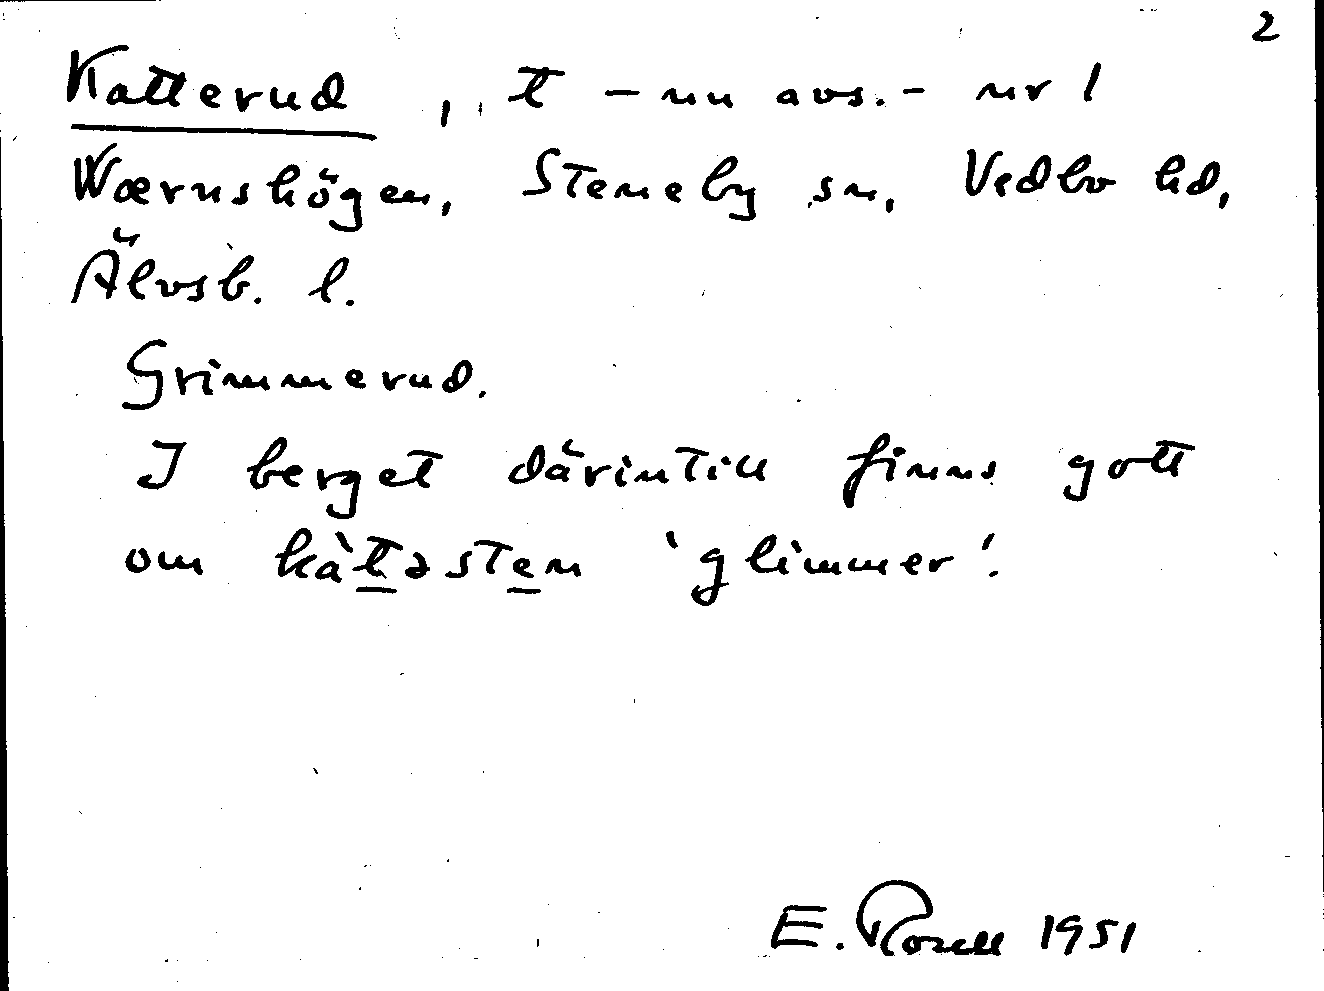 2
Katterud , t - nu avs. - nr 1
Wærnshögen, Steneby sn, Vedbo hd,
Älvsb. l.
Grimmerud.
I berget därintill finns gott
om kàt̲əste̲n 'glimmer'.
E. Rosell 1951